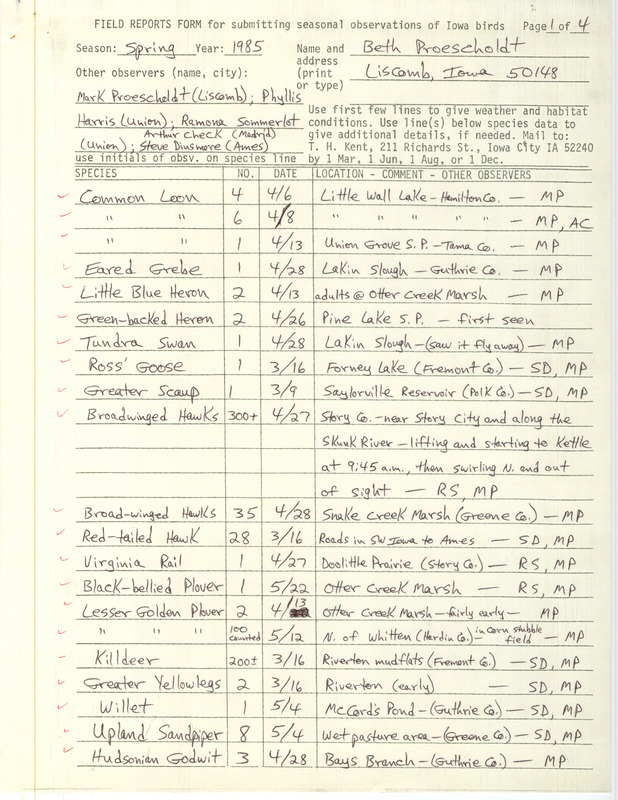 FIELD REPORTS FORM for submitting seasonal observations of Iowa birds Page 1 of 4
Season: Spring Year: 1985 Name and address (print or type) Beth Proescholdt
Liscomb, Iowa 50148
Other observers (name, city):
Mark Proescholdt (Liscomb); Phyllis
Harris (Union); Ramona Sommerlot
Arthur Check (Madrid)
(Union); Steve Dinsmore (Ames)
use initials of obsv. on species line
Use first few lines to give weather and habitat
conditions. Use line(s) below species data to
give additional details, if needed. Mail to:
T. H. Kent, 211 Richards St., Iowa City IA 52240
by 1 Mar, 1 Jun, 1 Aug, or 1 Dec.
SPECIES NO. DATE LOCATION - COMMENT - OTHER OBSERVERS
Common Loon 4 4/6 Little Wall Lake - Hamilton Co. - MP
" " 6 4/8 " " " " - MP, AC
" " 1 4/13 Union Grove S.P. - Tama Co. - MP
Eared Grebe 1 4/28 Lakin Slough - Guthrie Co. - MP
Little Blue Heron 2 4/13 adults @ Otter Creek Marsh - MP
Green-backed Heron 2 4/26 Pine Lake S.P. - first seen
Tundra Swan 1 4/28 Lakin Slough - (saw it fly away) - MP
Ross' Goose 1 3/16 Forney Lake (Fremont Co.) - SD, MP
Greater Scaup 1 3/9 Saylorville Reservoir (Polk Co.) - SD, MP
Broadwinged Hawks 300+ 4/27 Story Co. - near Story City and along the
Skunk River - lifting and starting to Kettle
at 9:45 a.m., then swirling N. and out
of sight - RS, MP
Broad-winged Hawks 35 4/28 Snake Creek Marsh (Greene Co.) - MP
Red-tailed Hawk 28 3/16 Roads in SW Iowa to Ames - SD, MP
Virginia Rail 1 4/27 Doolittle Prairie (Story Co.) - RS, MP
Black-bellied Plover 1 5/22 Otter Creek Marsh - RS, MP
Lesser Golden Plover 2 4/13 Otter Creek Marsh - fairly early - MP
" " 100 counted 5/12 N. of Whitten (Hardin Co.) - in corn stubble field - MP
Killdeer 200± 3/16 Riverton mudflats (Fremont Co.) - SD, MP
Greater Yellowlegs 2 3/16 Riverton (early) - SD, MP
Willet 1 5/4 McCord's Pond - (Guthrie Co.) - SD, MP
Upland Sandpiper 8 5/4 Wet pasture area - (Greene Co.) - SD, MP
Hudsonian Godwit 3 4/28 Bays Branch - (Guthrie Co.) - MP